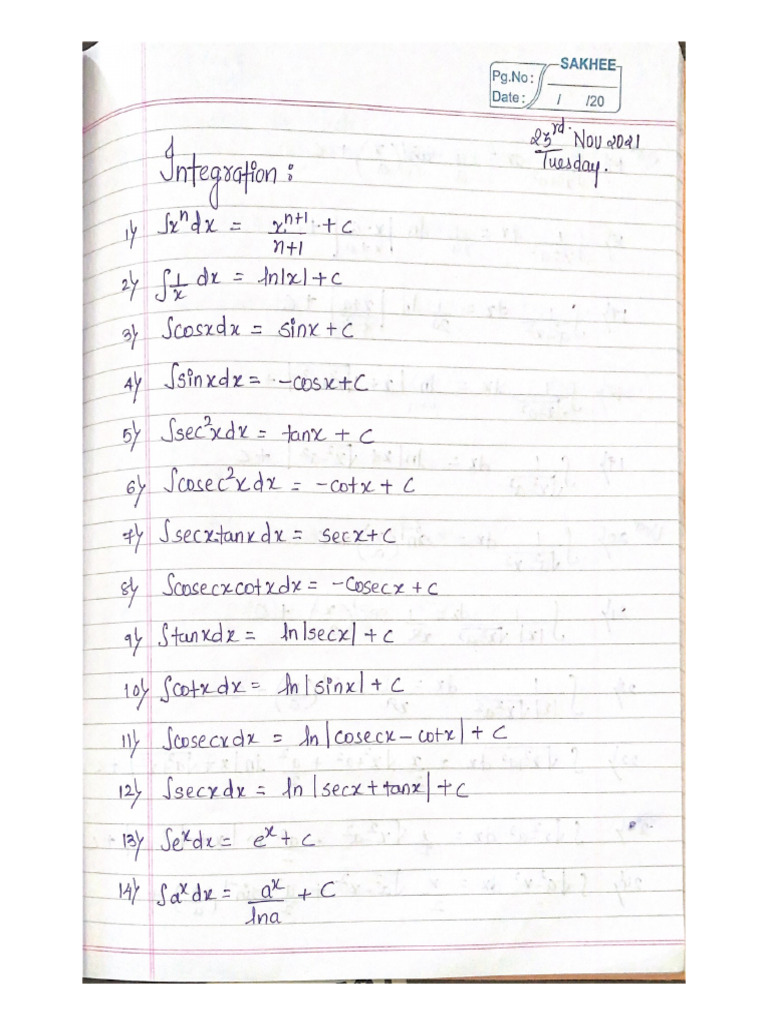 SAKHEE
Pg.No:
Date: / /20
23rd Nov 2021
Tuesday.
Integration:
1) ∫xⁿdx = xⁿ⁺¹/n+1 + C
2) ∫1/x dx = ln|x| + C
3) ∫cosxdx = sinx + C
4) ∫sinxdx = -cosx + C
5) ∫sec²xdx = tanx + C
6) ∫cosec²xdx = -cotx + C
7) ∫secx.tanxdx = secx + C
8) ∫cosecxcotxdx = -cosecx + C
9) ∫tanxdx = ln|secx| + C
10) ∫cotxdx = ln|sinx| + C
11) ∫cosecxdx = ln|cosecx - cotx| + C
12) ∫secxdx = ln|secx + tanx| + C
13) ∫eˣdx = eˣ + C
14) ∫aˣdx = aˣ/lna + C